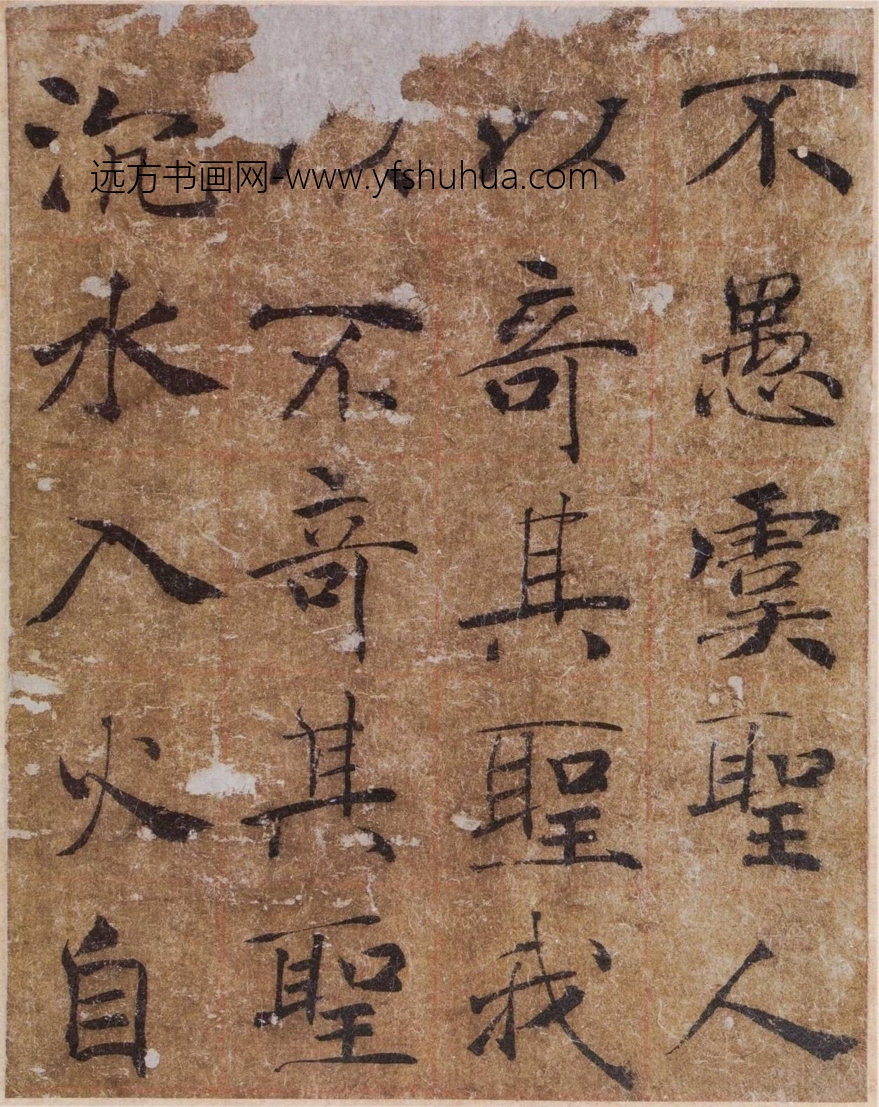 不愚虞聖人
以奇其聖我
以不奇其聖
沉水入火自
远方书画网-www.yfshuhua.com